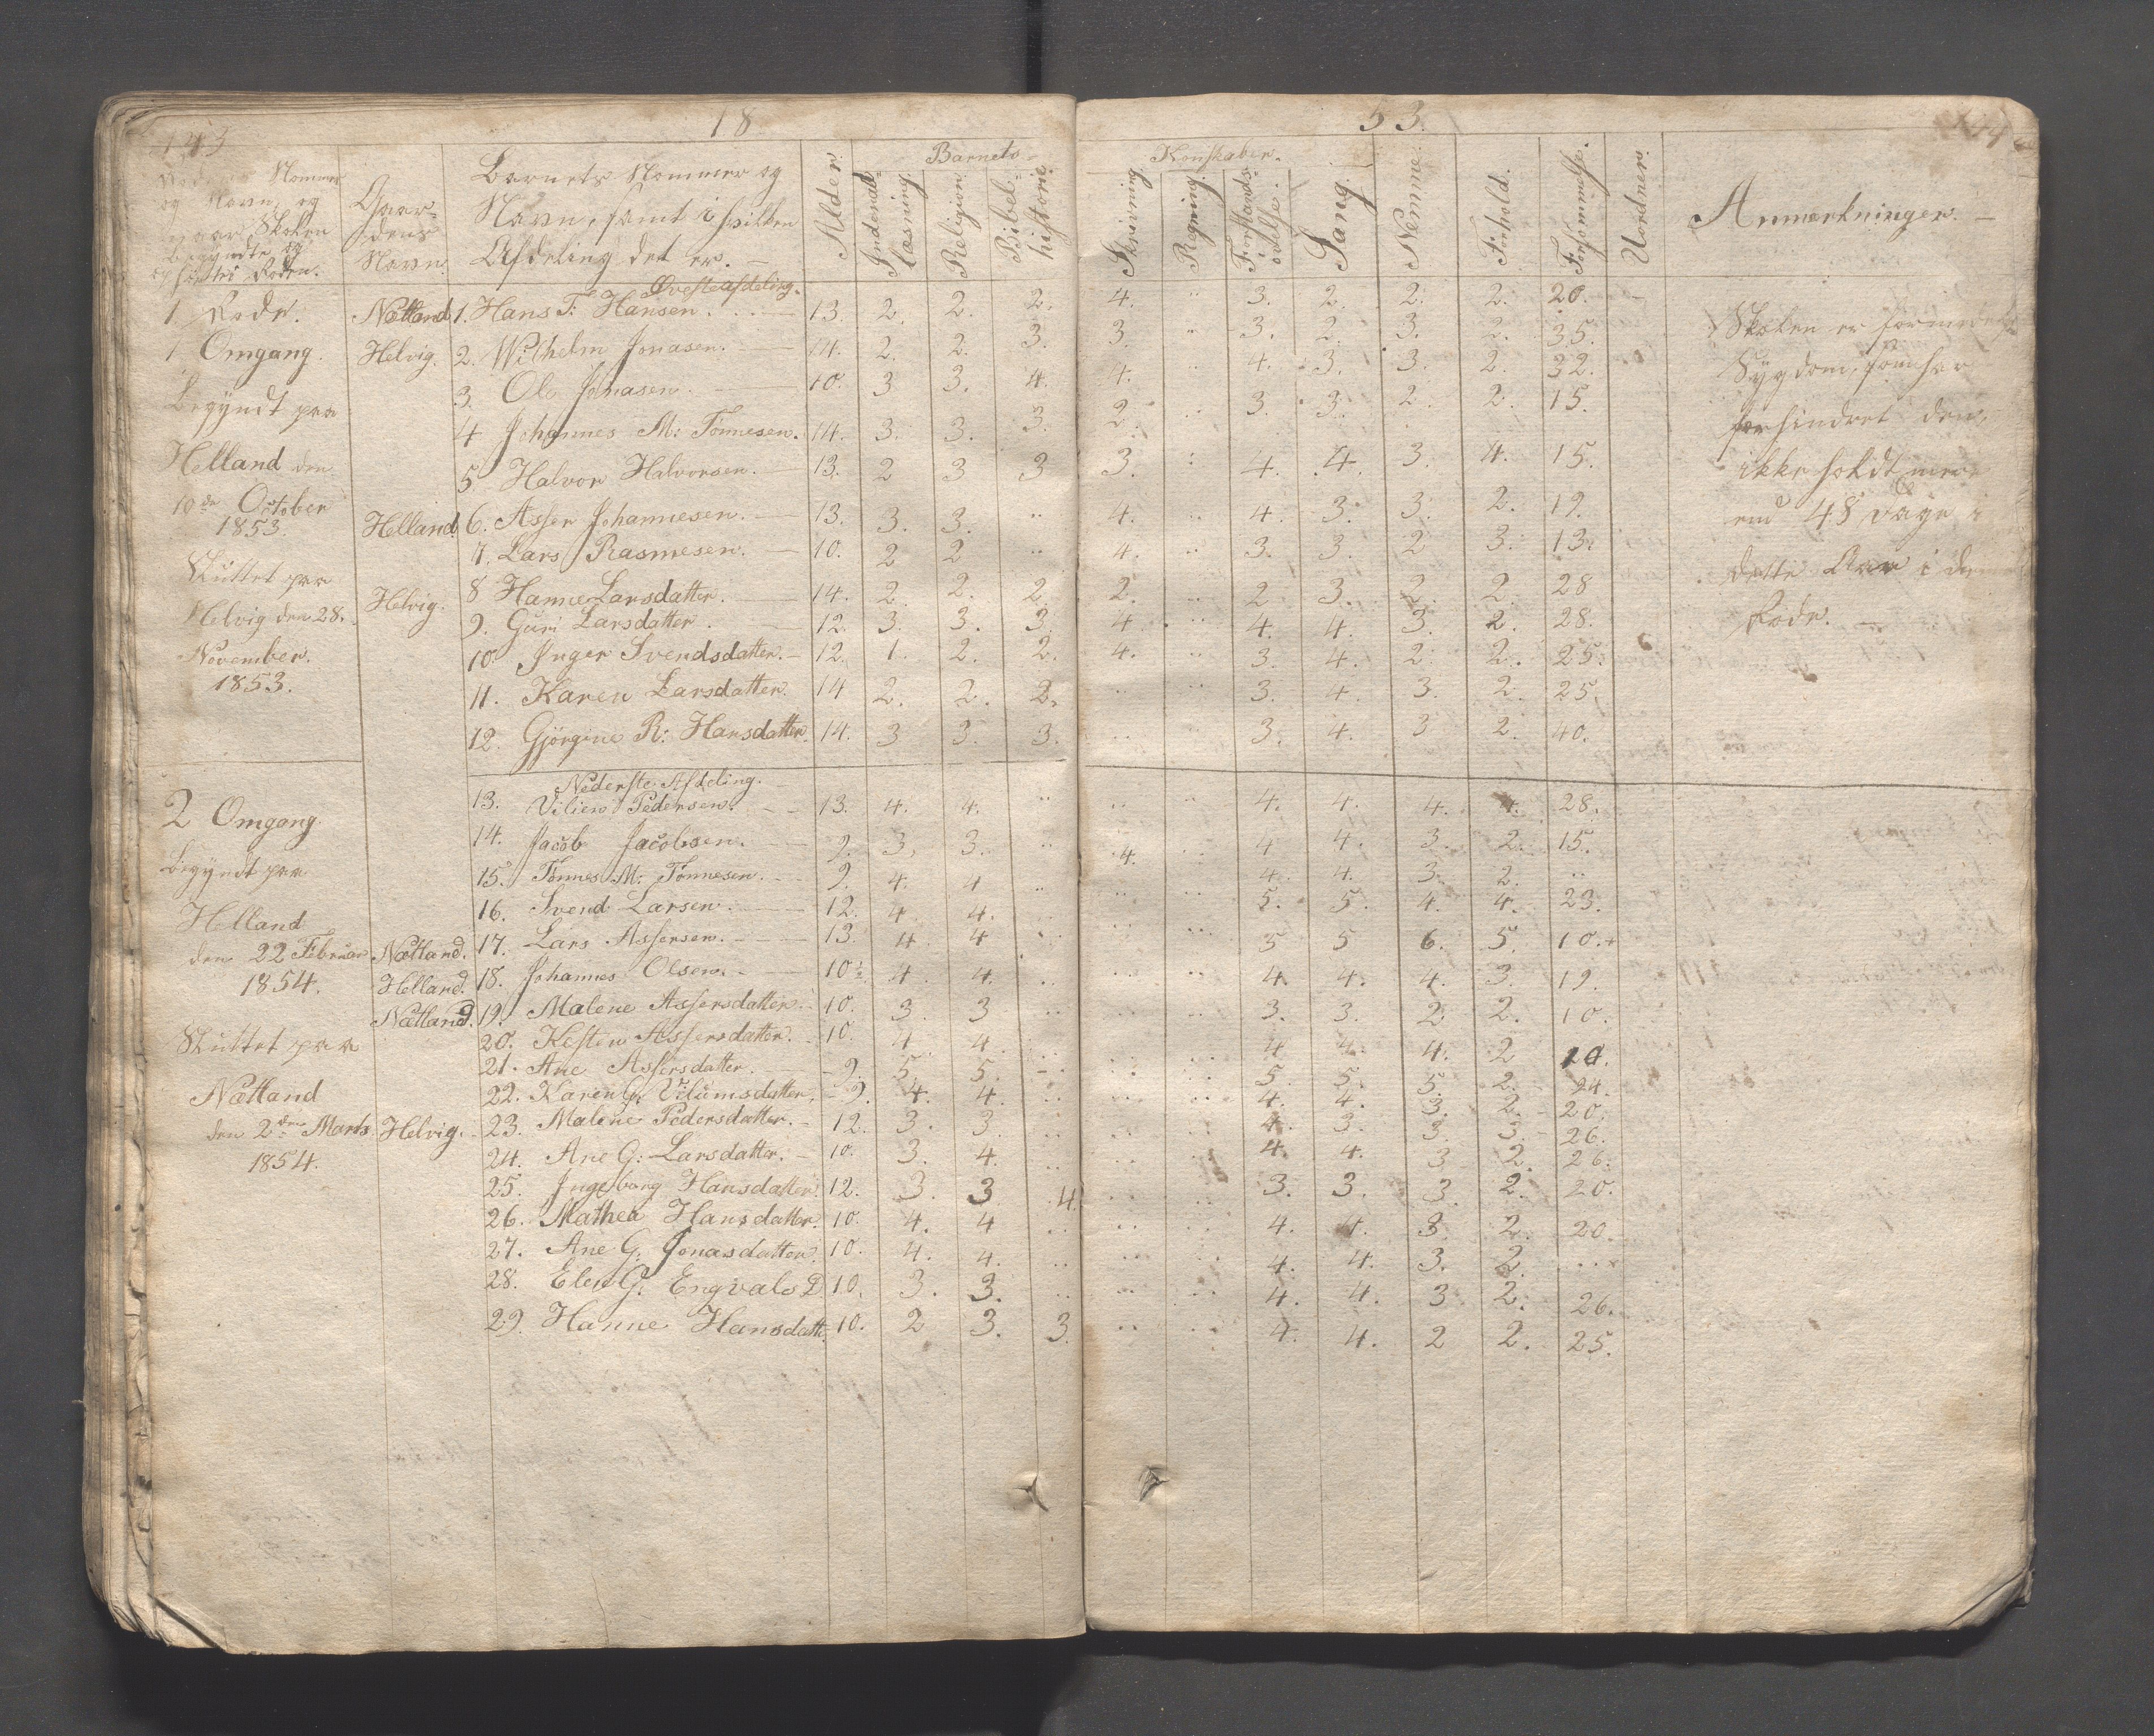 143 18 53. 144
Rodens Nommer og Navn, og naar Skolen begyndte og sluttes Roden. Gaar-dens Navn. Barnets Nommer og Navn, samt i hvilken Afdeling det er. Alder. Barnets Kundskaber. Indenad-læsning. Religion. Bibel-historie. Skrivning Regning. Forstands-øvelse. Sang. Nemme. Forhold. Forsømmelse. Uordner. Anmærkninger.
Øverste afdeling.
1. Rode. Nætland 1. Hans T: Hansen. 13. 2. 2. 2. 4. " 3. 2. 2. 2. 20.
1 Omgang. Helvig. 2. Wilhelm Jonasen. 14. 2. 2. 3. 3. " 3. 2. 3. 2. 35. Skolen er formedelst
3. Ole Jonasen. 10. 3 3. 4. 4. " 4. 3. 3. 2. 32. Sygdom, som har
Begyndt paa 4 Johannes M: Tönnesen. 14. 3. 3. 3. 2. " 3. 3. 2. 2. 15. forhindret den,
Helland den 5. Halvor Halvorsen. 13. 2 3 3 3. " 4. 4. 3. 4. 15. ikke holdt mere
10de October Helland 6. Asser Johannesen. 13. 3. 3. " 4. " 4. 3. 3. 2. 19. end 48 Dage i
1853. 7. Lars Rasmesen. 10. 2 2 " 4. " 3. 3. 2 3. 13.
Sluttet paa Helvig. 8 Hanne Larsdatter. 14. 2. 2. 2. 2. " 2 3. 2. 2. 28 dette Aar i denne
Helvig den 28. 9. Guri Larsdatter. 12. 3. 3. 3. 4. " 4. 4. 3. 2. 28. Rode.
November. 10. Inger Svendsdatter. 12. 1. 2. 2. 4. " 3. 4. 2. 2. 25.
1853. 11. Karen Larsdatter. 14 2. 2. 2. " " 3. 4. 3. 2. 25.
12. Gjörgine R: Hansdatter. 14. 3 3. 3. " " 3. 4. 3 2. 40.
Nederste Afdeling.
2 Omgang 13. Viliem Pedersen. 13. 4. 4. " " " 4. 4. 4. 4. 28.
14. Jacob Jacobsen. 9. 3. 3. " 4. " 4 4. 3. 2. 15.
Begyndt paa 15. Tönnes M: Tönnesen. 9. 4. 4 " " " 4. 4. 3. 2. "
Helland 16. Svend Larsen. 12. 4. 4. " " " 5. 5. 4. 4. 23.
den 22 Februar Nætland. 17. Lars Assersen. 13. 4. 4 " " " 5 5 6. 5. 10.+
1854. Helland. 18. Johannes Olsen. 10. 4. 4. " " " 4. 4. 4. 3. 19.
Nætland. 19. Malene Assersdatter. 10. 3. 3 " " " 3. 3. 2. 2. 10.
Sluttet paa 20. Kesten Assersdatter. 10. 4 4. " " " 4 4. 4. 2 10.
21. Ane Assersdatter. 9. 5. 5. " " " 5. 5. 5. 2. 24.
Nætland 22. Karen G. Vilumsdatter. 9. 4. 4. " " " 4. 4. 3. 2. 20.
den 2den Marts Helvig. 23. Malene Pedersdatter. 12. 3. 3. " " " 4. 3. 3. 3. 26.
1854. 24. Ane G: Larsdatter. 10. 3. 4. " " " 4. 4. 3 2. 26.
25. Ingeborg Hansdatter 12. 3. 3 4. " " 3. 3. 3. 2. 20.
26. Mathea Hansdatter. 10. 4. 4 " " " 4. 4. 3. 2. 20.
27. Ane G. Jonasdatter. 10. 4. 4. " " " 4. 4. 3. 2. "
28. Elen G. Engvals D 10. 3. 3. " " " 4. 4. 3 2. 26.
29. Hanne Hansdatt. 10. 2 3. 3. " " 4. 4. 2 2. 25.